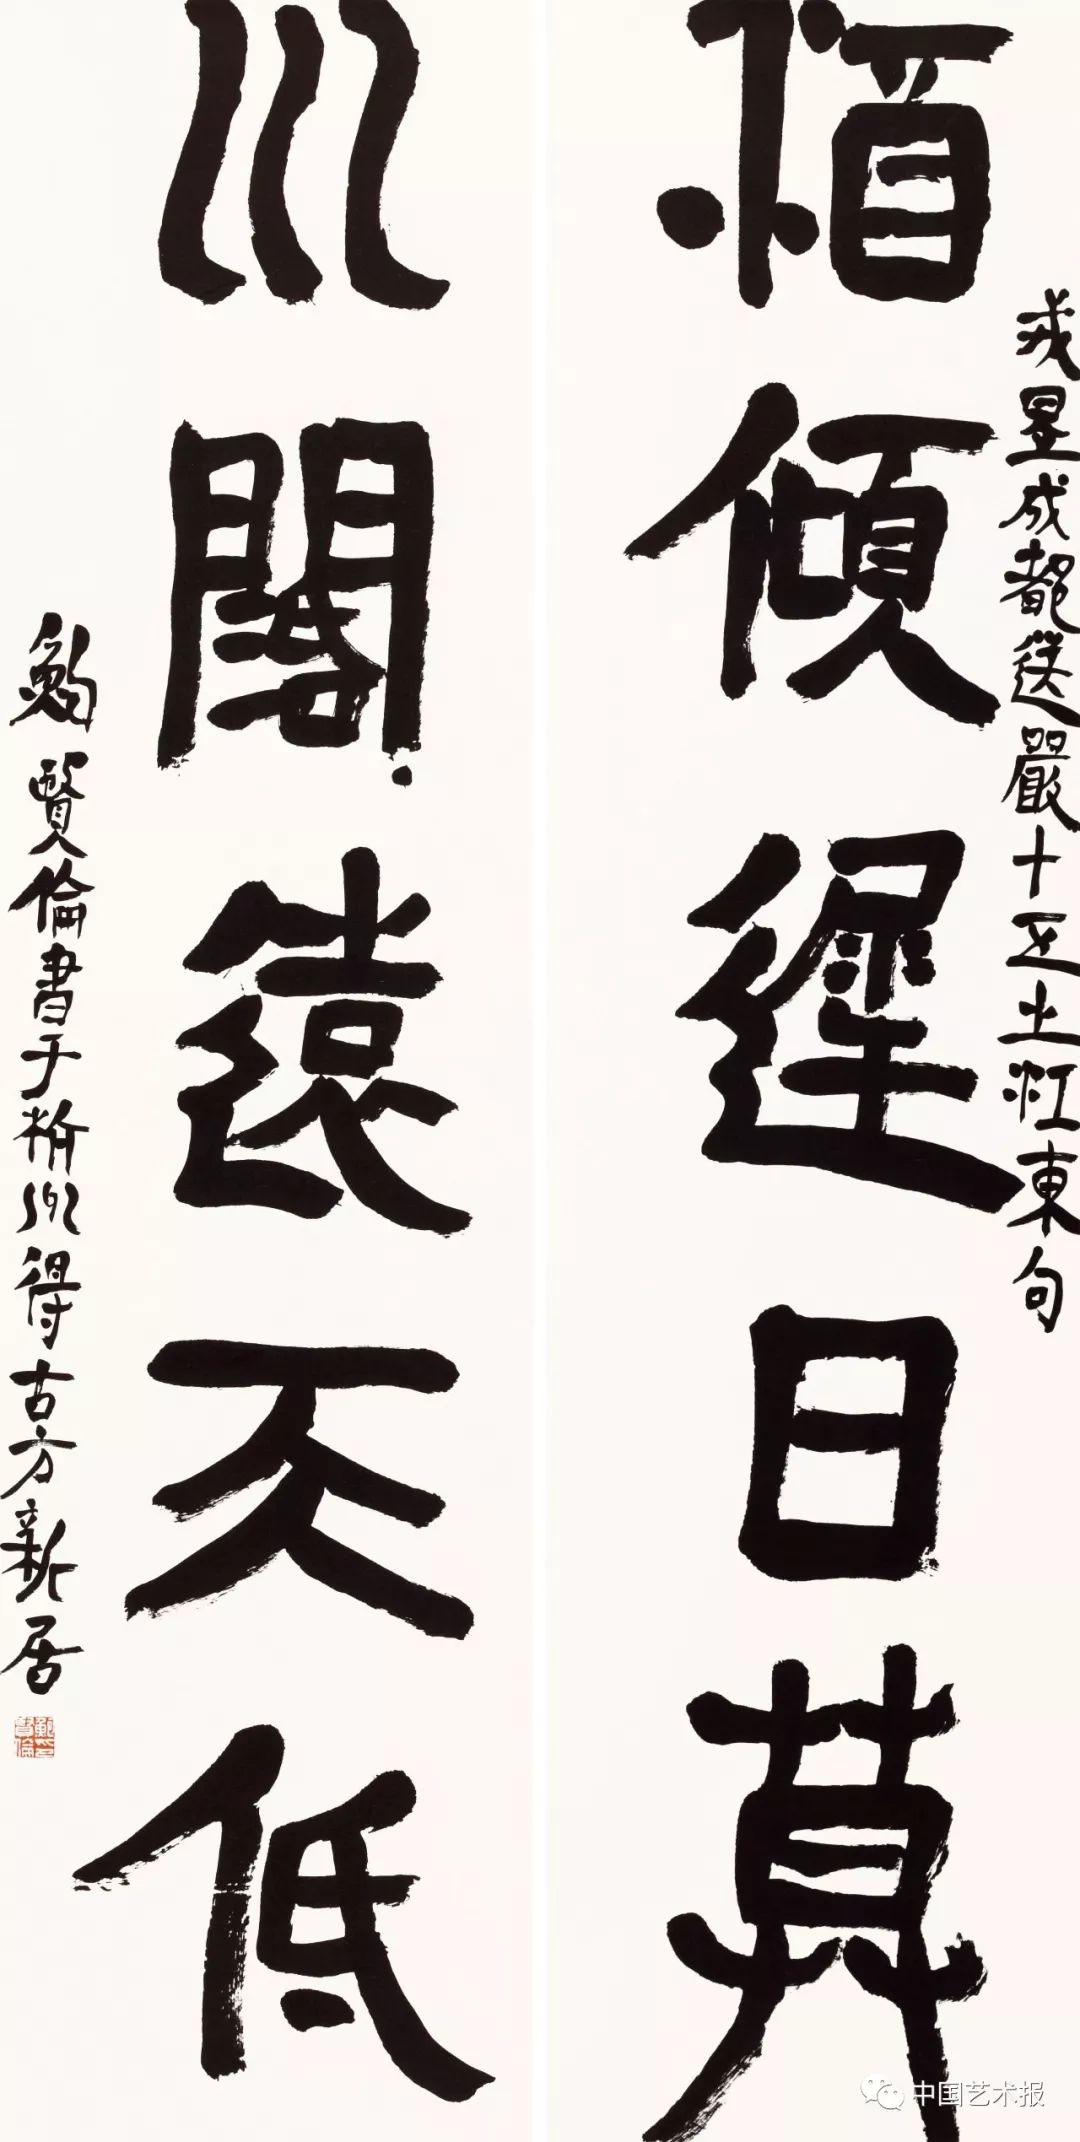 戎昱成都送嚴十五之江東句
酒傾遲日莫
川闊遠天低
鮑賢倫書于杭州得古方新居
中国艺术报